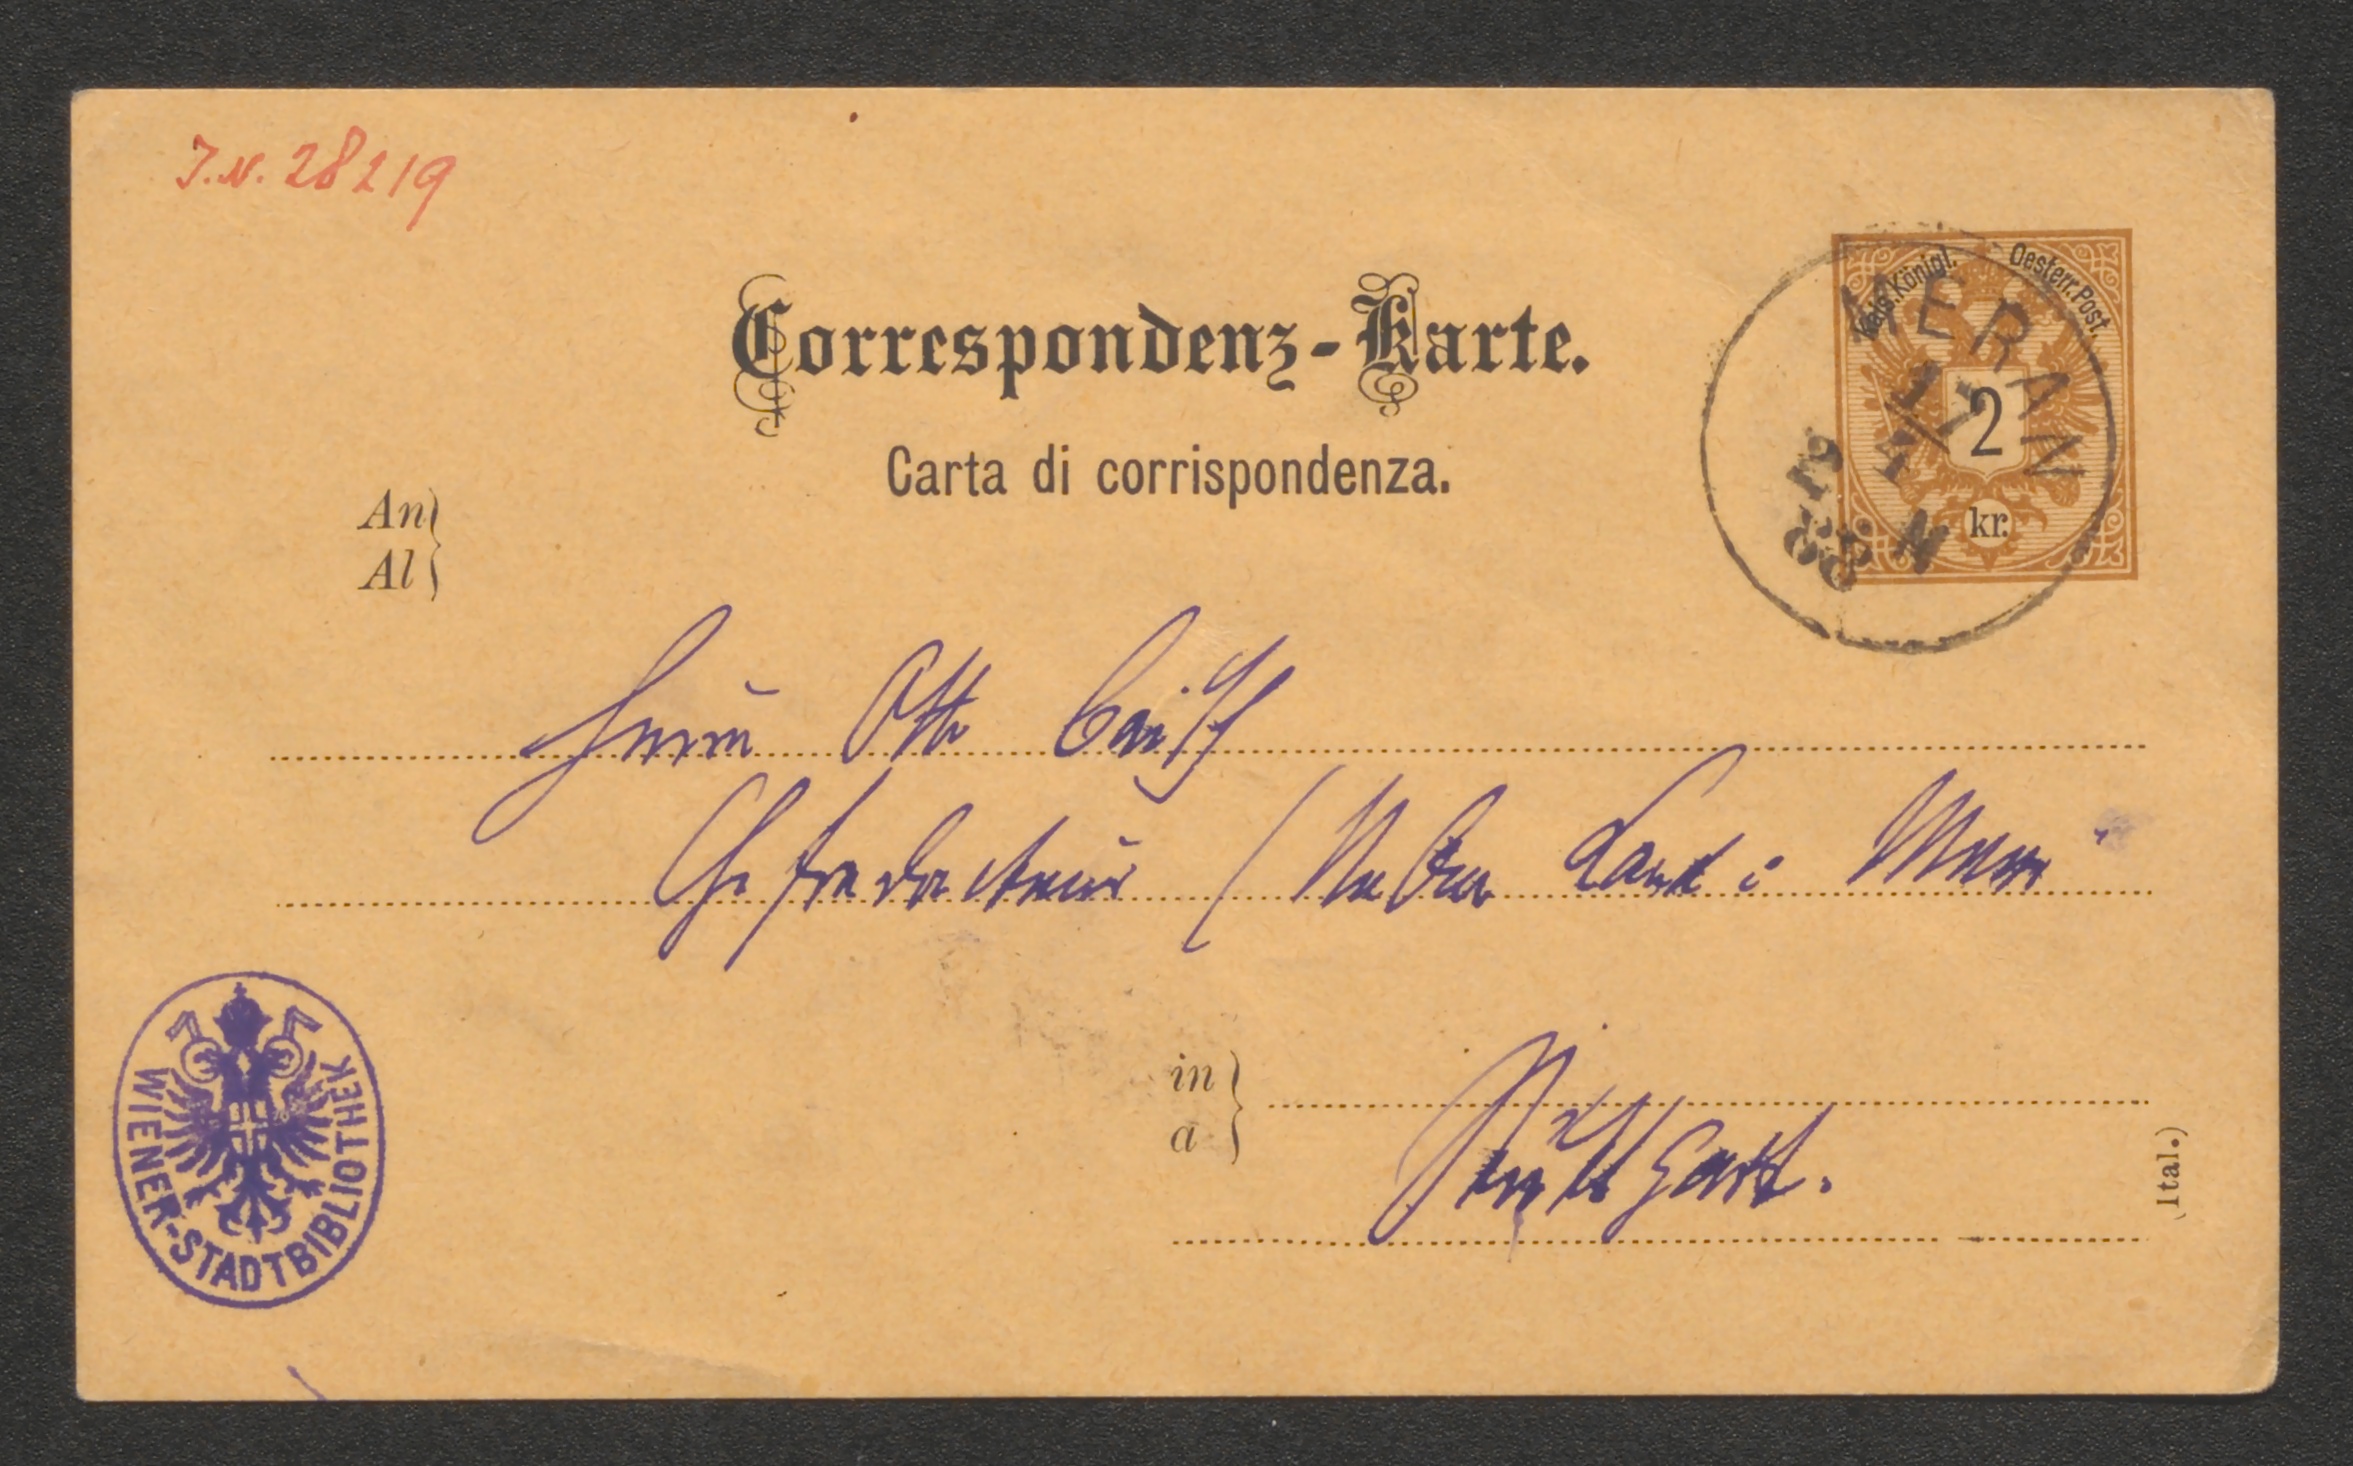 J.N. 28219
Correspondenz-Karte.
Carta di corrispondenza.
Kais. Königl. Oesterr. Post.
2
kr.
MERAN
17
4
88
N
An
Al
Herrn Otto Baisch
Chefredacteur / Ueber Land u Meer"
in
a
Stuttgart.
(Ital.)
WIENER-STADTBIBLIOTHEK